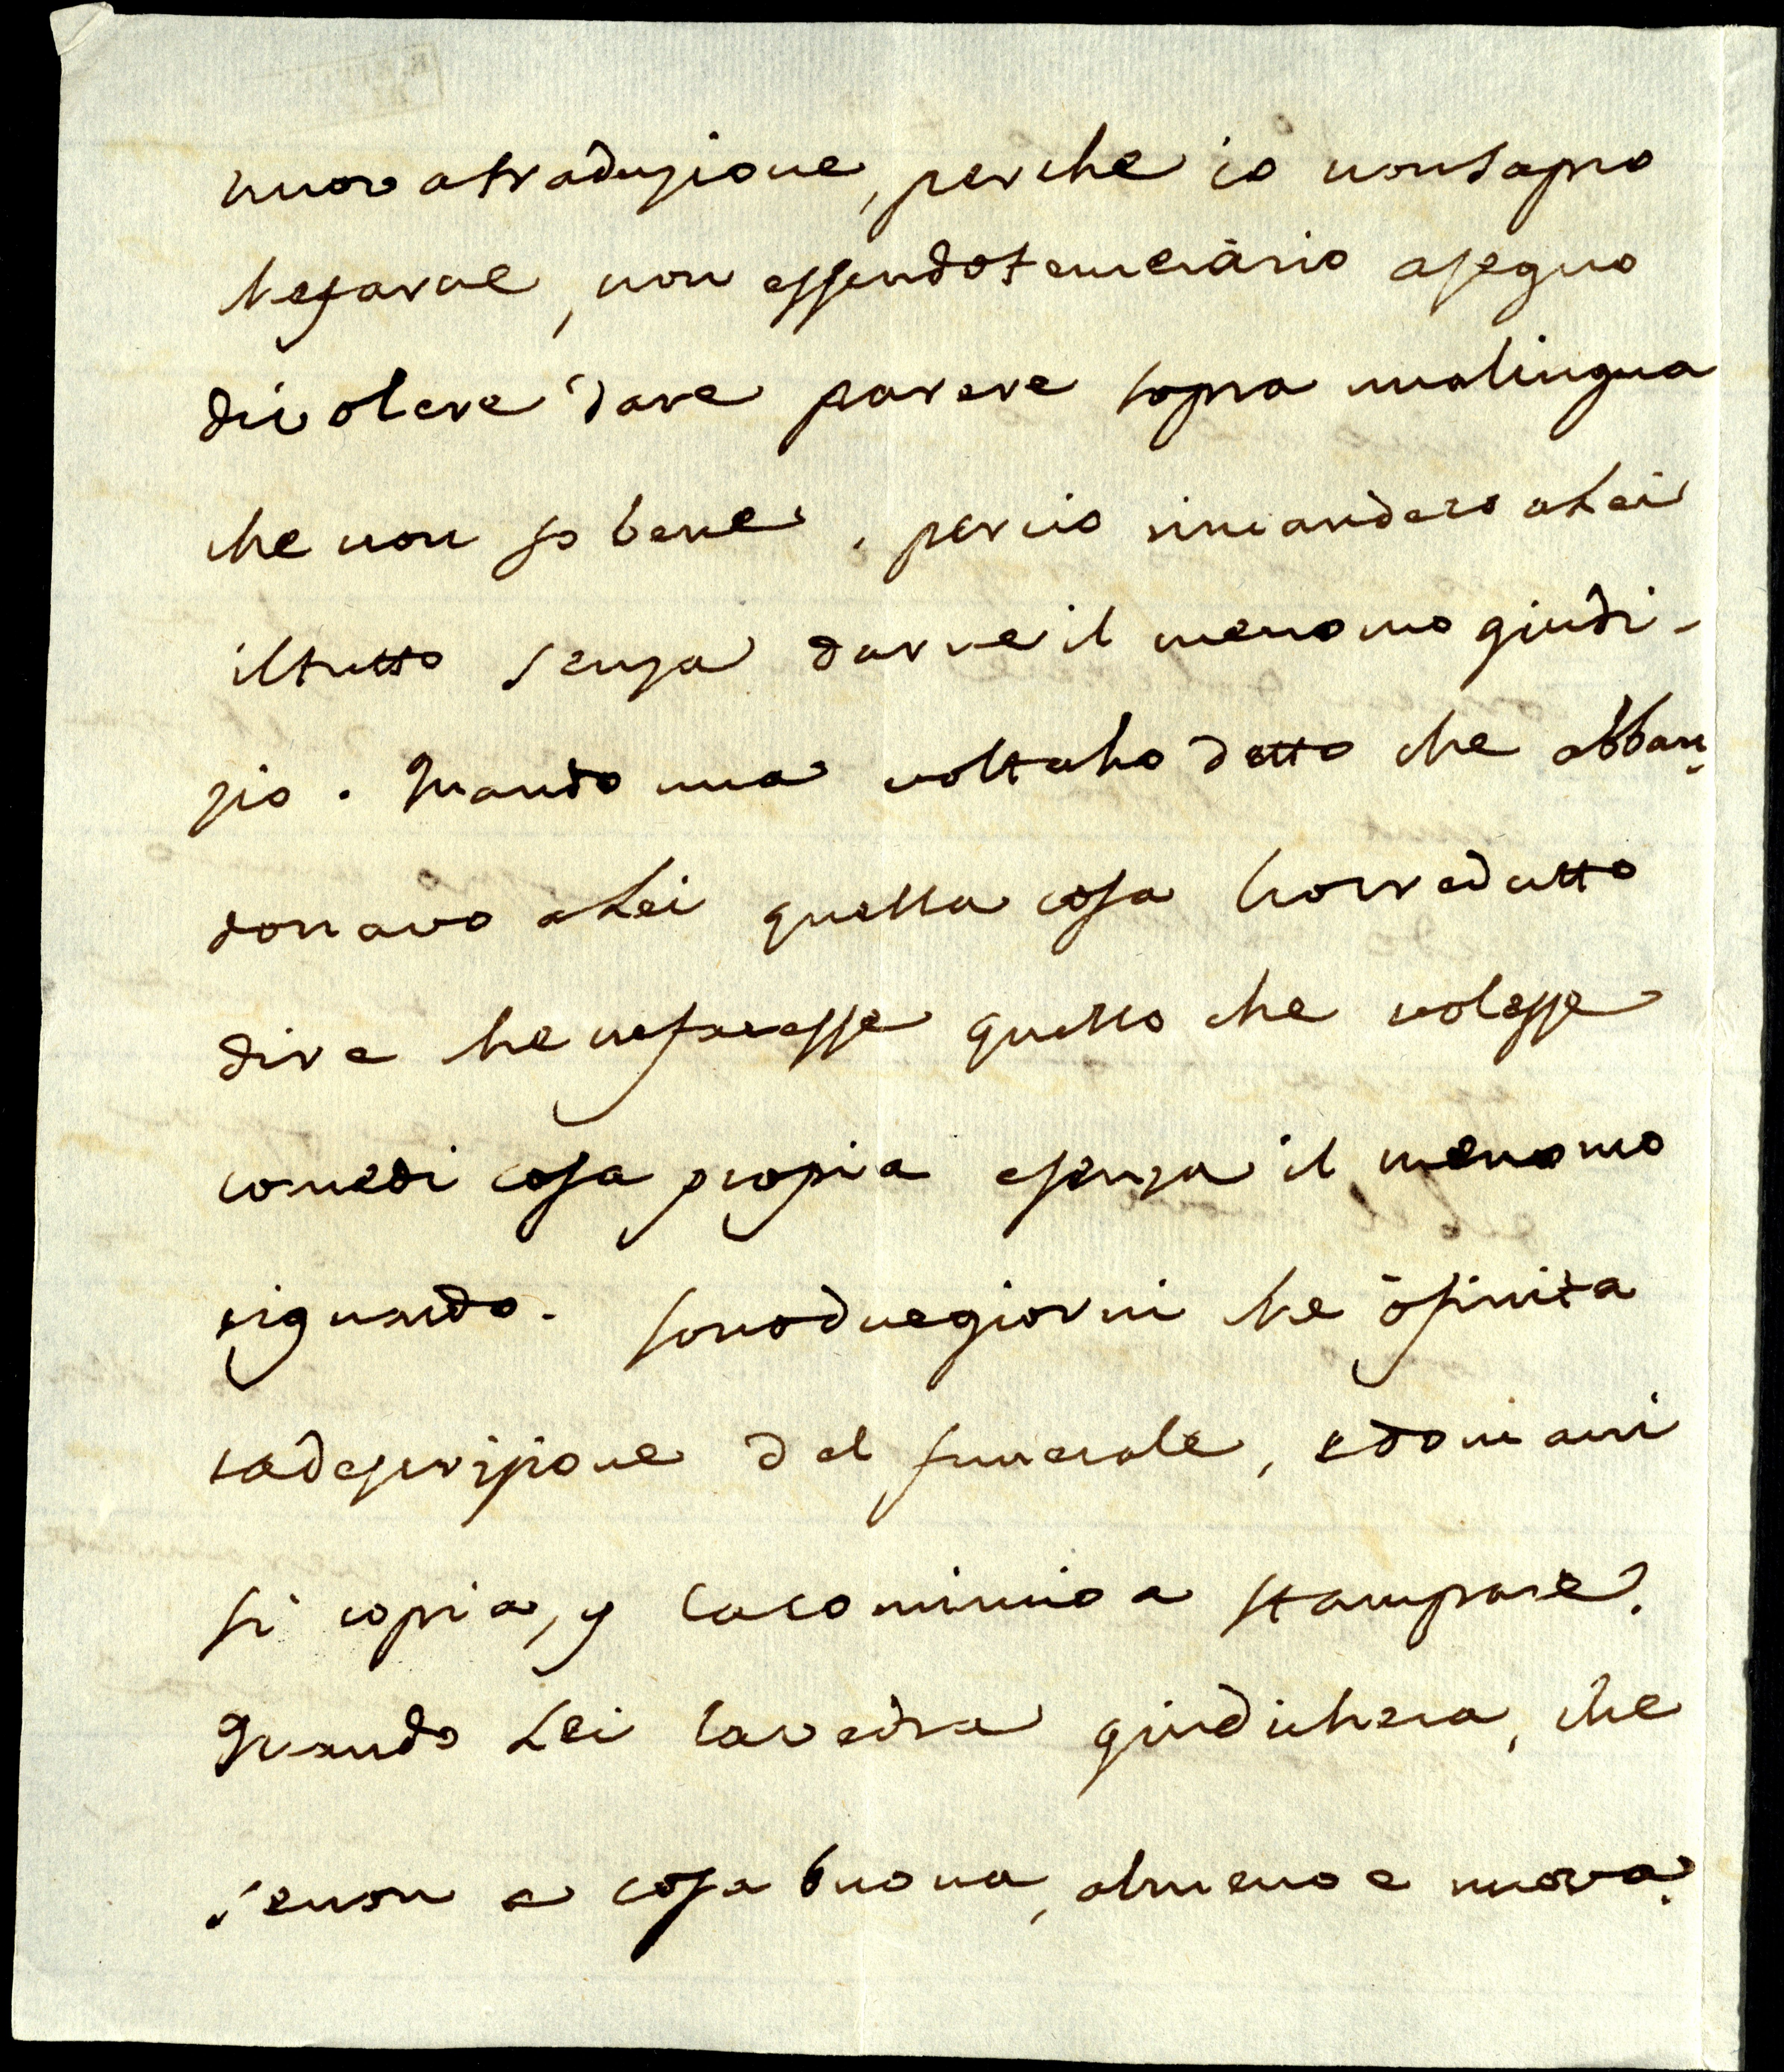 nuova traduzione, perche io non sapro
che farne, non essendo temerario a segno
di volere dare parere sopra una lingua
che non so bene, percio rimandero a Lei
il tutto senza darne il menomo giudi-
zio. Quando una volta ho detto che abban-
donavo a Lei quella cosa ho creduto
dire che ne facesse quello che volesse
come di cosa propia e senza il menomo
riguardo. sono due giorni che ò finita
la descrizione del funerale, e domani
si copia, y la comincio a stampare.
Quando Lei la vedra giudichera, che
se non e cosa buona, almeno e nuova.